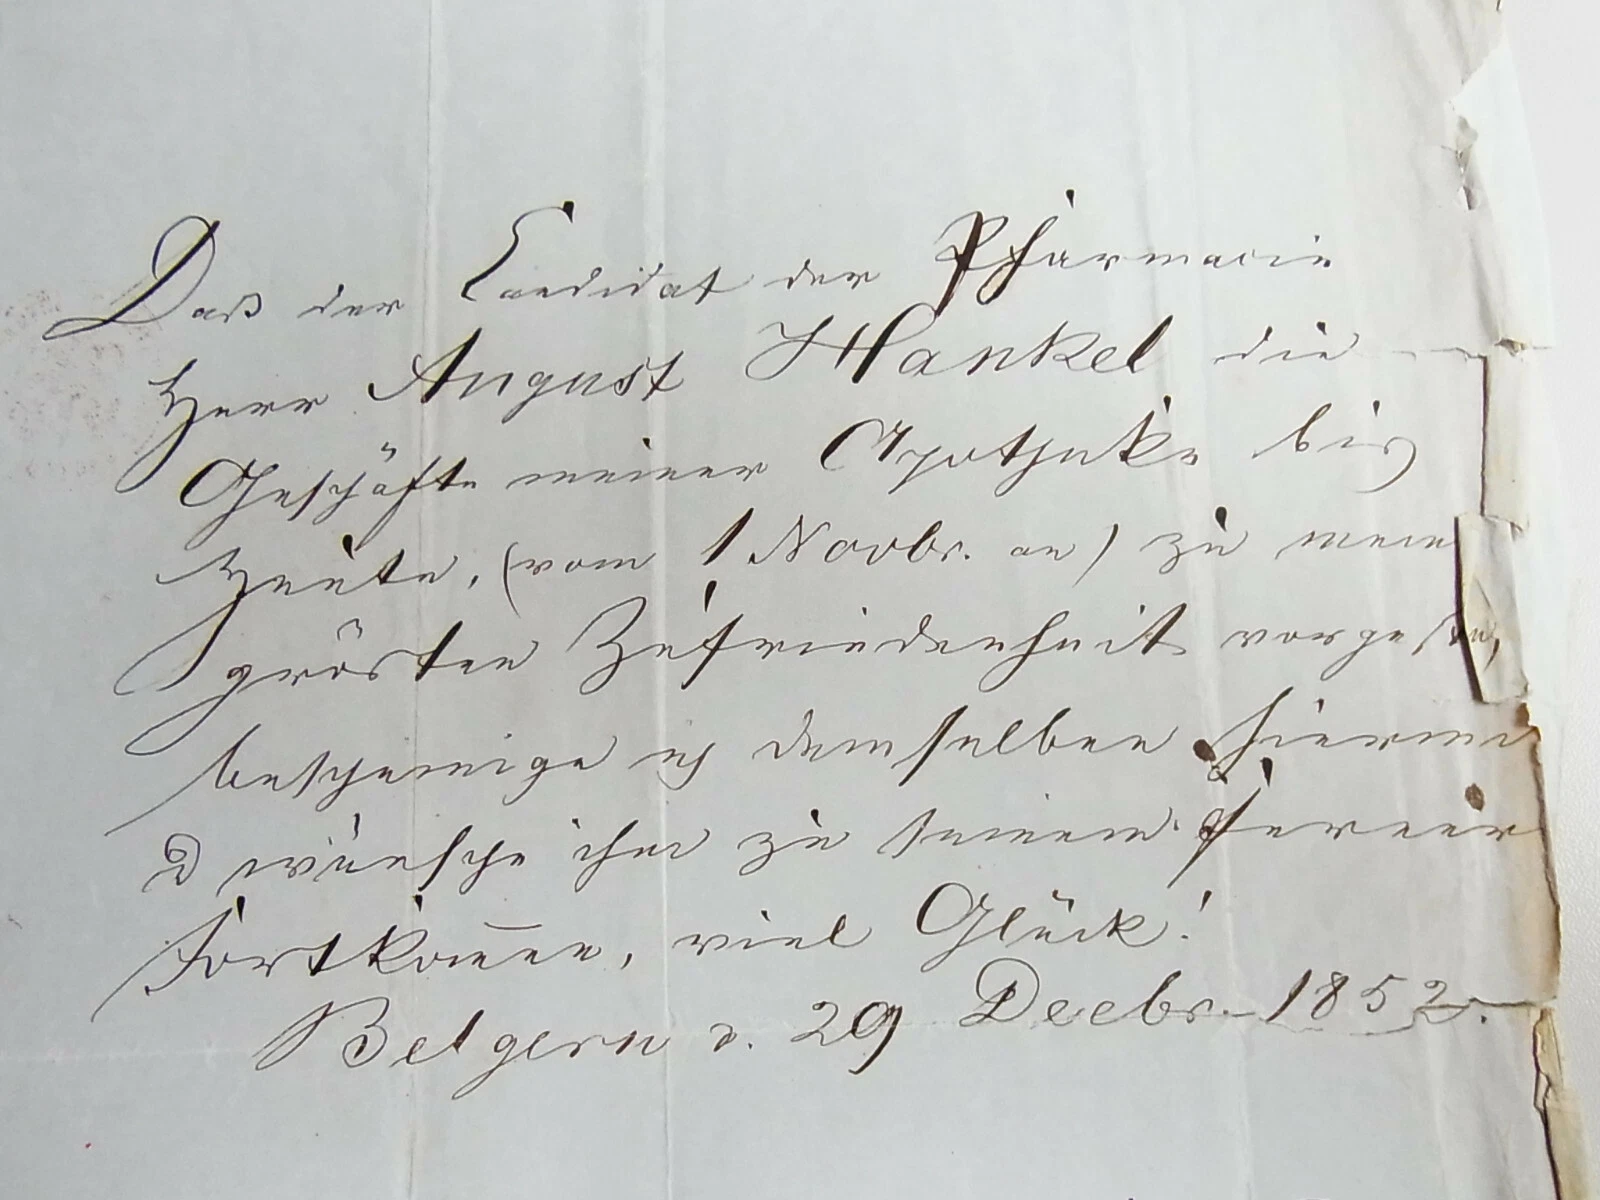 Daß der Candidat der Pharmacie
Herr August Hankel die
Geschäfte meiner Apotheke bis
Heute, (vom 1 Novbr. an) zu mein
grösten Zufriedenheit vorgest,
bescheinige ich demselben hiermi
& wünsche ihm zu seinem ferner
Fortkom̅en, viel Glück!
Belgern d. 29 Decbr. 1852.